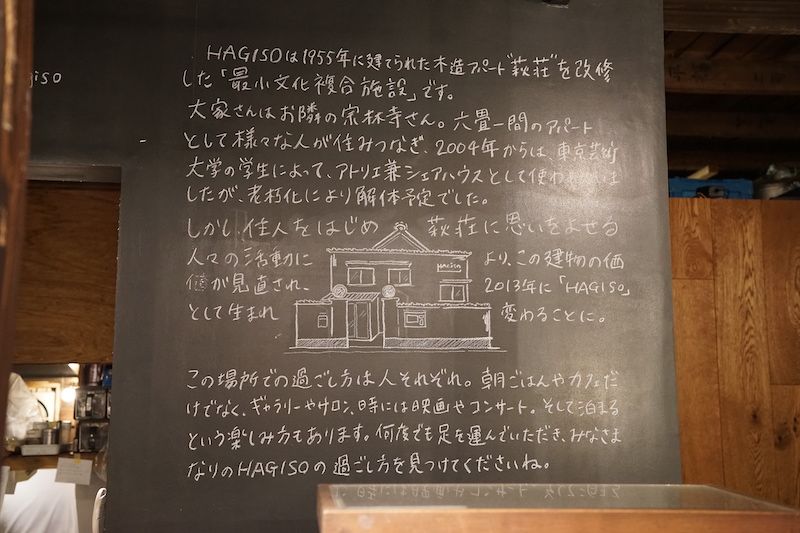 giso
HAGISOは1955年に建てられた木造アパート"萩荘"を改修
した「最小文化複合施設」です。
大家さんはお隣の宗林寺さん。六畳一間のアパート
として様々な人が住みつなぎ、2004年からは、東京芸術
大学の学生によって、アトリエ兼シェアハウスとして使わ
したが、老朽化により解体予定でした。
しかし、住人をはじめ 萩荘に思いをよせる
人々の活動に より、この建物の価
値が見直され、 2013年に「HAGISO」
として生まれ 変わることに。
HAGISO
この場所での過ごし方は人それぞれ。朝ごはんやカフェだ
けでなく、ギャラリーやサロン、時には映画やコンサート。そして泊まる
という楽しみ方もあります。何度でも足を運んでいただき、みなさま
なりのHAGISOの過ごし方を見つけてくださいね。